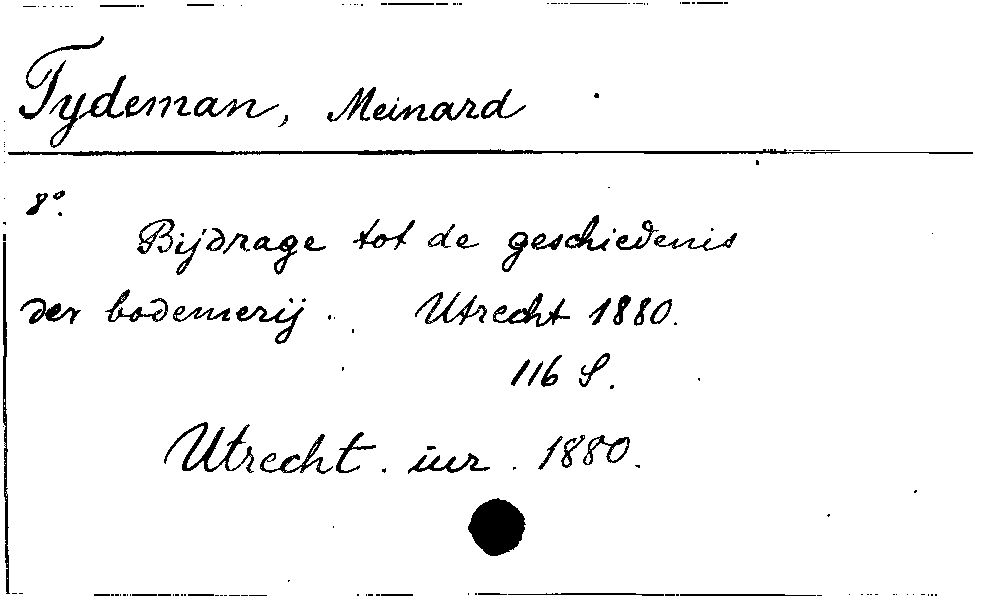 Tydeman, Meinard
8°.
Bijdrage tot de geschiedenis
der bodemerij. Utrecht 1880.
116 S.
Utrecht. iur. 1880.